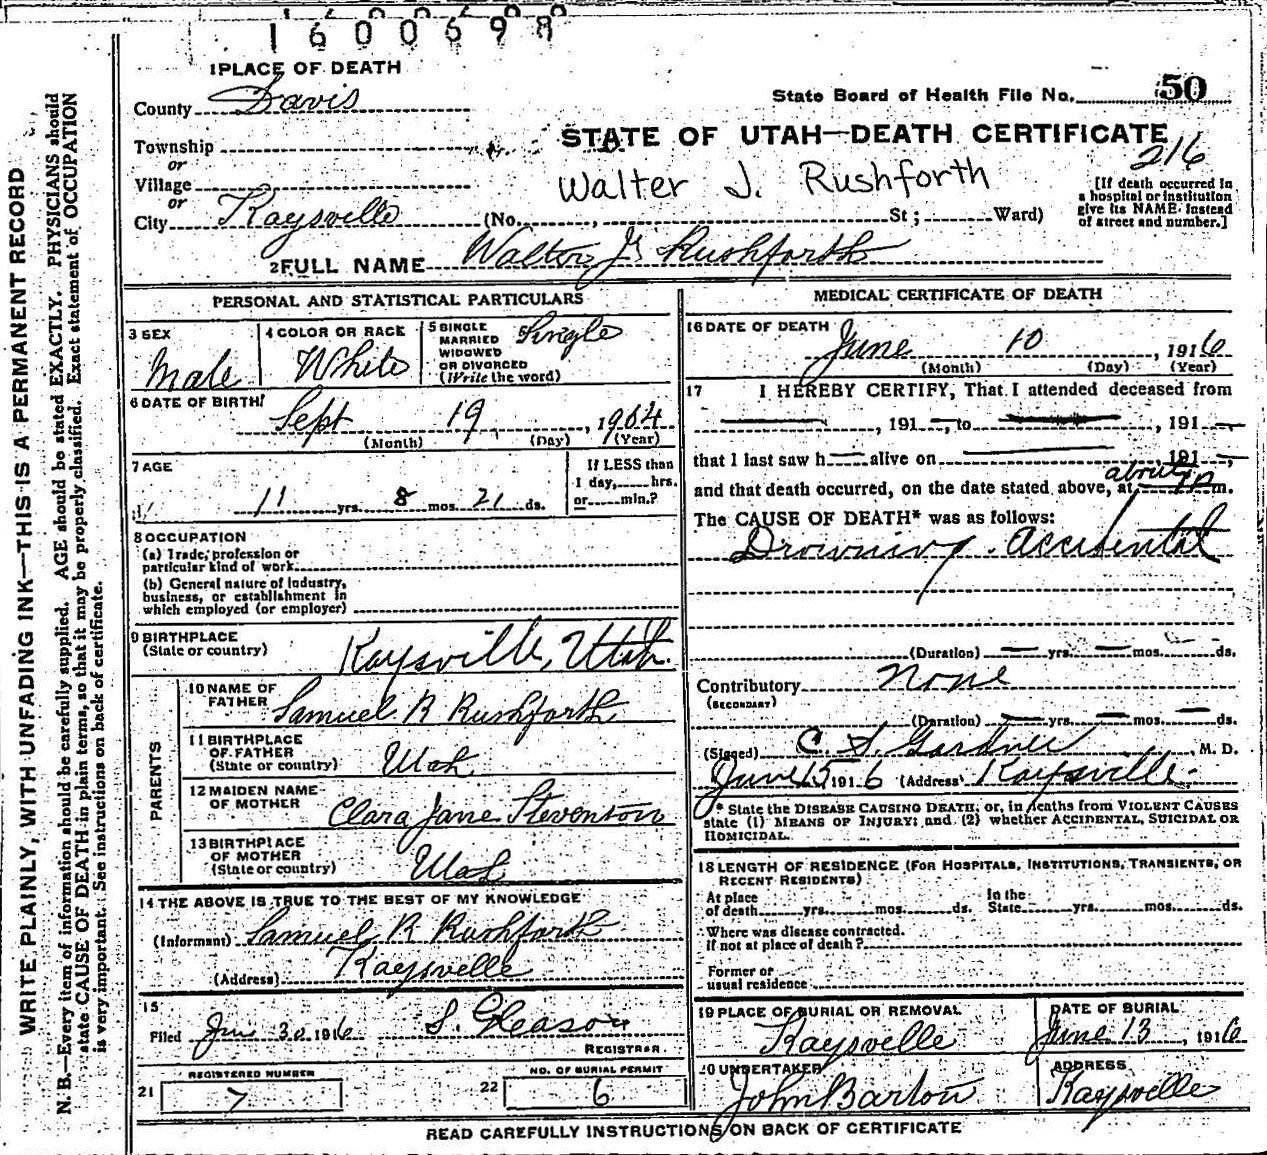 1600698
1 PLACE OF DEATH
County Davis
State Board of Health File No. 50
Township
or
STATE OF UTAH—DEATH CERTIFICATE
216
Village
or
Walter J. Rushforth
[If death occurred in
a hospital or institution
give its NAME instead
of street and number.]
City Kaysville (No. , St ; Ward)
2 FULL NAME Walter J. Rushforth
PERSONAL AND STATISTICAL PARTICULARS
3 SEX
Male
4 COLOR OR RACE
White
5 SINGLE
MARRIED
WIDOWED
OR DIVORCED
(Write the word)
Single
6 DATE OF BIRTH
Sept 19, 1904
(Month) (Day) (Year)
7 AGE
11 yrs. 8 mos. 21 ds.
If LESS than
1 day, hrs.
or min.?
8 OCCUPATION
(a) Trade, profession or
particular kind of work
(b) General nature of industry,
business, or establishment in
which employed (or employer)
9 BIRTHPLACE
(State or country)
Kaysville, Utah.
PARENTS
10 NAME OF
FATHER
Samuel R Rushforth
11 BIRTHPLACE
OF FATHER
(State or country)
Utah
12 MAIDEN NAME
OF MOTHER
Clara Jane Stevenson
13 BIRTHPLACE
OF MOTHER
(State or country)
Utah
14 THE ABOVE IS TRUE TO THE BEST OF MY KNOWLEDGE
(Informant) Samuel R Rushforth
(Address) Kaysville
15
Filed Jun 30 1916 S. Gleason
REGISTRAR.
21 REGISTERED NUMBER
7
22 NO. OF BURIAL PERMIT
6
MEDICAL CERTIFICATE OF DEATH
16 DATE OF DEATH
June 10, 1916
(Month) (Day) (Year)
17 I HEREBY CERTIFY, That I attended deceased from
, 191 , to , 191
that I last saw h alive on , 191 ,
about
and that death occurred, on the date stated above, at m.
The CAUSE OF DEATH* was as follows:
Drowning. accidental
(Duration) yrs. mos. ds.
Contributory None
(SECONDARY)
(Duration) yrs. mos. ds.
(Signed) C. S. Gardner, M. D.
June 15 1916 (Address) Kaysville
* State the DISEASE CAUSING DEATH, or, in deaths from VIOLENT CAUSES
state (1) MEANS OF INJURY; and (2) whether ACCIDENTAL, SUICIDAL OR
HOMICIDAL.
18 LENGTH OF RESIDENCE (FOR HOSPITALS, INSTITUTIONS, TRANSIENTS, OR
RECENT RESIDENTS)
At place
of death yrs. mos. ds.
In the
State yrs. mos. ds.
Where was disease contracted.
if not at place of death?
Former or
usual residence
19 PLACE OF BURIAL OR REMOVAL
Kaysville
DATE OF BURIAL
June 13, 1916
20 UNDERTAKER
John Barton
ADDRESS
Kaysville
READ CAREFULLY INSTRUCTIONS ON BACK OF CERTIFICATE
WRITE PLAINLY, WITH UNFADING INK—THIS IS A PERMANENT RECORD
N. B.—Every item of information should be carefully supplied. AGE should be stated EXACTLY. PHYSICIANS should
state CAUSE OF DEATH in plain terms, so that it may be properly classified. Exact statement of OCCUPATION
is very important. See instructions on back of certificate.